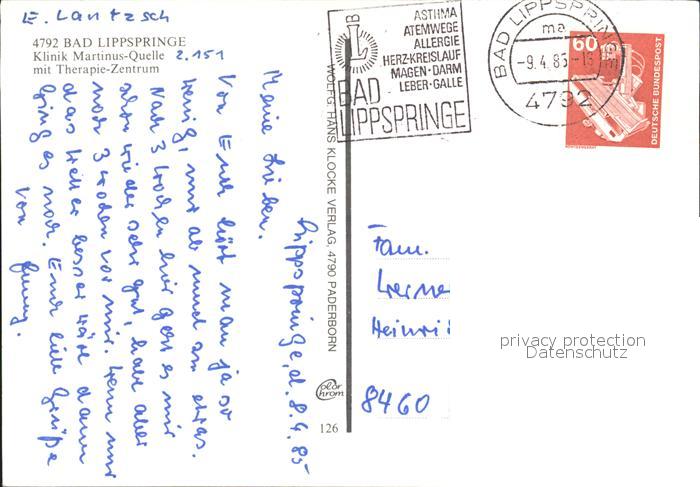 E. Lantzsch
4792 BAD LIPPSPRINGE
Klinik Martinus-Quelle
mit Therapie-Zentrum
Z. 151
Lippspringe, d. 8.4.85
Meine Lieben.
Von Euch hört man ja so
wenig, nur ab und an etwas.
Nach 3 Wochen hier geht es mir
schon wieder sehr gut, habe aber
noch 3 Wochen vor mir. Wenn nur
das Wetter besser wäre dann
ging es noch. Euch liebe Grüße
von
WOLFG. HANS KLOCKE VERLAG, 4790 PADERBORN
color
chrom
126
LB
ASTHMA
ATEMWEGE
ALLERGIE
HERZ·KREISLAUF
MAGEN·DARM
LEBER·GALLE
BAD
LIPPSPRINGE
BAD LIPPSPRINGE
ma
-9.4.85-13
4792
60
DEUTSCHE BUNDESPOST
Fam.
Werne
Heinri
8460
privacy protection
Datenschutz